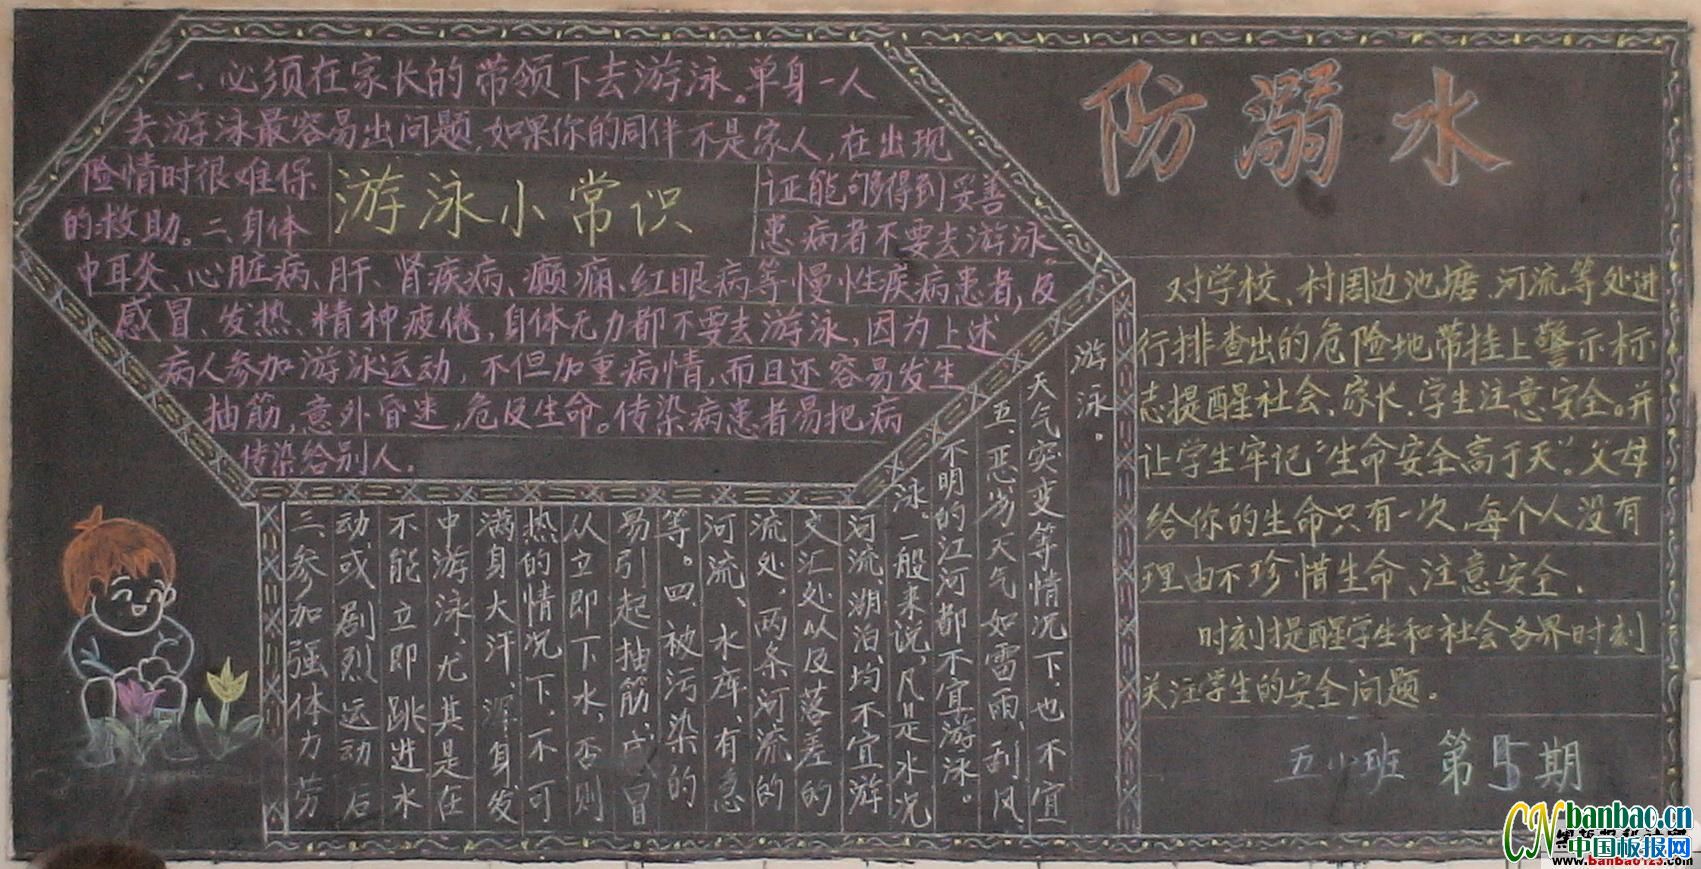 防溺水
游泳小常识
一、必须在家长的带领下去游泳。单身一人
去游泳最容易出问题,如果你的同伴不是家人,在出现
险情时很难保证能够得到妥善
的救助。二、身体患病者不要去游泳
中耳炎、心脏病、肝、肾疾病、癫痫、红眼病等慢性疾病患者,及
感冒、发热、精神疲倦,身体无力都不要去游泳,因为上述
病人参加游泳运动,不但加重病情,而且还容易发生
抽筋,意外昏迷,危及生命。传染病患者易把病
传染给别人。
三、参加强体力劳
动或剧烈运动后
不能立即跳进水
中游泳,尤其是在
满身大汗,浑身发
热的情况下,不可
从立即下水,否则
易引起抽筋,感冒
等。四、被污染的
河流、水库,有急
流处,两条河流的
交汇处以及落差的
河流、湖泊,均不宜游
泳。一般来说,凡是水况
不明的江河都不宜游泳。
五、恶劣天气如雷雨、刮风
天气突变等情况下,也不宜
游泳。
对学校、村周边池塘、河流等处进
行排查出的危险地带挂上警示标
志提醒社会、家长、学生注意安全。并
让学生牢记“生命安全高于天”。父母
给你的生命只有一次,每个人没有
理由不珍惜生命、注意安全.
时刻提醒学生和社会各界时刻
关注学生的安全问题。
五小班 第5期
CN banbao.cn
中国板报网
www.banbao123.com